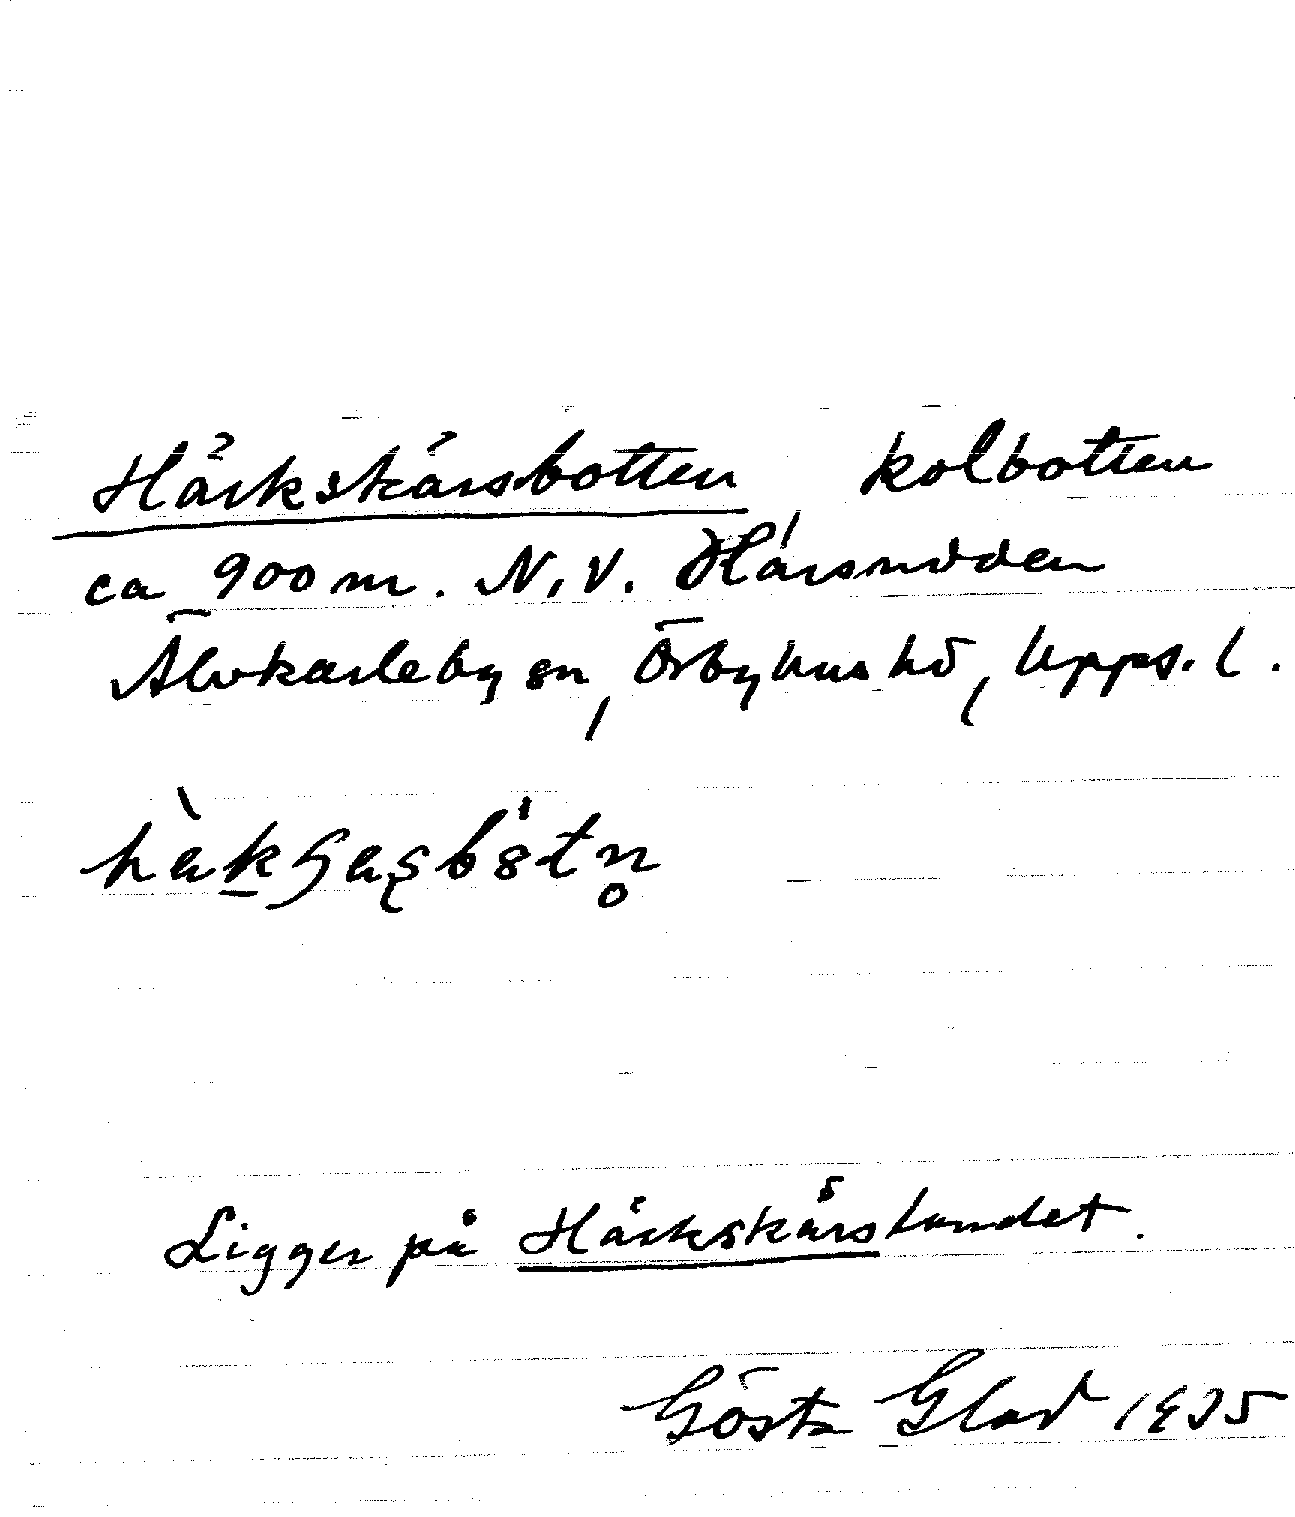 Härkskärsbotten kolbotten
ca 900 m. N.V. Hårsudden
Älvkarleby sn, Örbyhus hd, Upps. l.
Ligger på Härkskärslandet.
Gösta Glad 1935